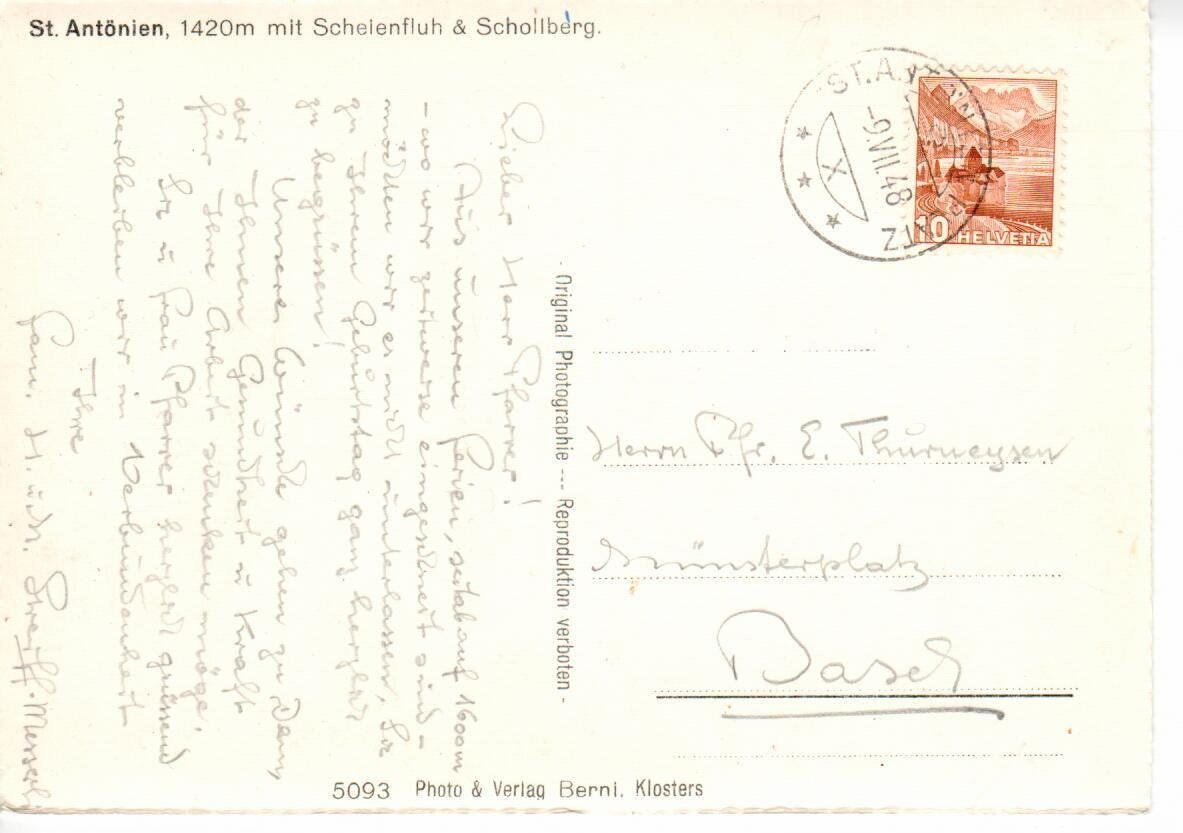 St. Antönien, 1420m mit Scheienfluh & Schollberg.
ST. ANTÖNIEN PLATZ
-9.VII.48
X
10 HELVETIA
Lieber Herr Pfarrer!
Aus unseren Ferien, seitab auf 1600m
- wo wir zeitweise eingeschneit sind -
möchten wir es nicht unterlassen, Sie
zu Ihrem Geburtstag ganz herzlich
zu begrüssen!
Unsere Wünsche gehen zu dem,
der Ihnen Gesundheit u Kraft
für Ihre Arbeit schenken möge.
Sie u Frau Pfarrer herzlich grüssend
verbleiben wir in Verbundenheit
Ihre
Fam. H. Streiff-Messerli
Original Photographie --- Reproduktion verboten -
Herrn Pfr. E. Thurneysen
Münsterplatz
Basel
5093 Photo & Verlag Berni, Klosters